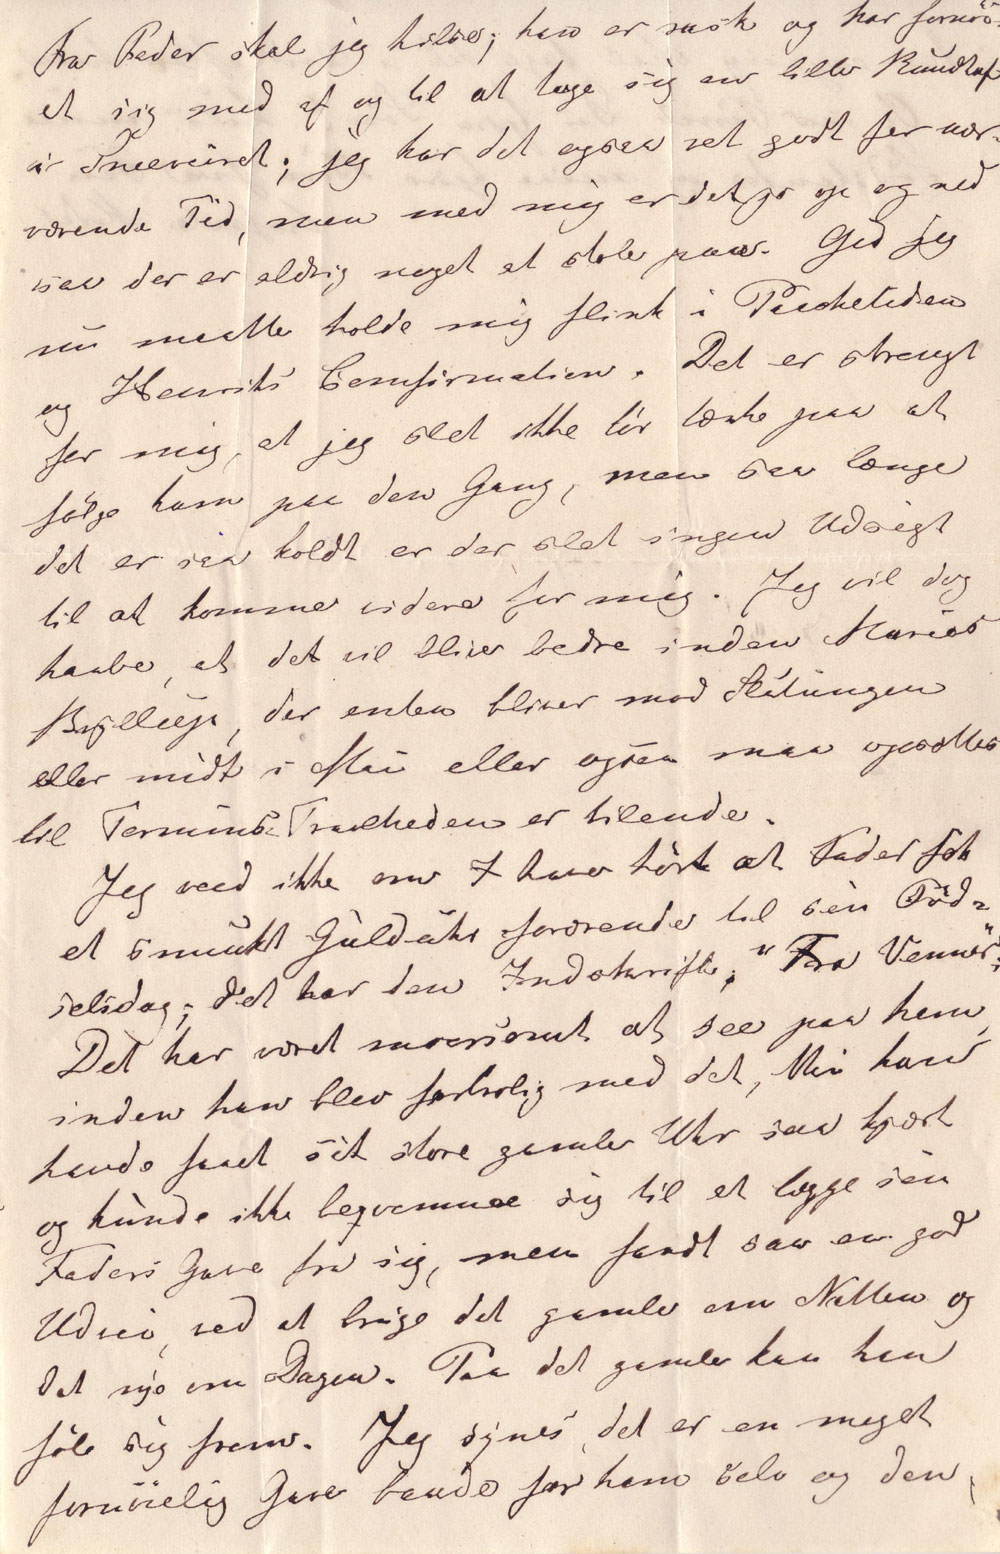 Fra Peder skal jeg hilse; han er rask og har fornöi-
et sig med af og til at tage sig en lille Kaudtaf
i Sneeveiret; jeg har det ogsaa ret godt for nær-
værende Tid, men med mig er det jo op og ned
saa der er aldrig noget at stole paa. Gid jeg
nu maatte holde mig flink i Paasketiden
og Henriks Comfirmation. Det er strengt
for mig, at jeg slet ikke tör tænke paa at
fölge ham paa den Gang, men saa længe
det er saa koldt er der slet ingen Udsigt
til at komme videre for mig. Jeg vil dog
haabe, at det vil blive bedre inden Maries
Bryllup, der enten bliver mod Slutningen
eller midt i Mai eller ogsaa maa opsættes
til Termins-Travlheden er tilende.
Jeg veed ikke om I have hört at Fader fik
et smukt Gulduhr forærende til sin Föd-
selsdag; det har den Indskrift, "Fra Venner".
Det har været morsomt at see paa ham,
inden han blev fortrolig med det, Min han
havde faaet sit store gamle Uhr saa kjært
og kunde ikke beqvemme sig til at lægge sin
Faders Gave fra sig, men fandt saa en god
Udvei, ved at bruge det gamle om Natten og
det nye om Dagen. Paa det gamle kan han
föle sig frem. Jeg synes, det er en meget
fornöielig Gave baade for ham selv og den,